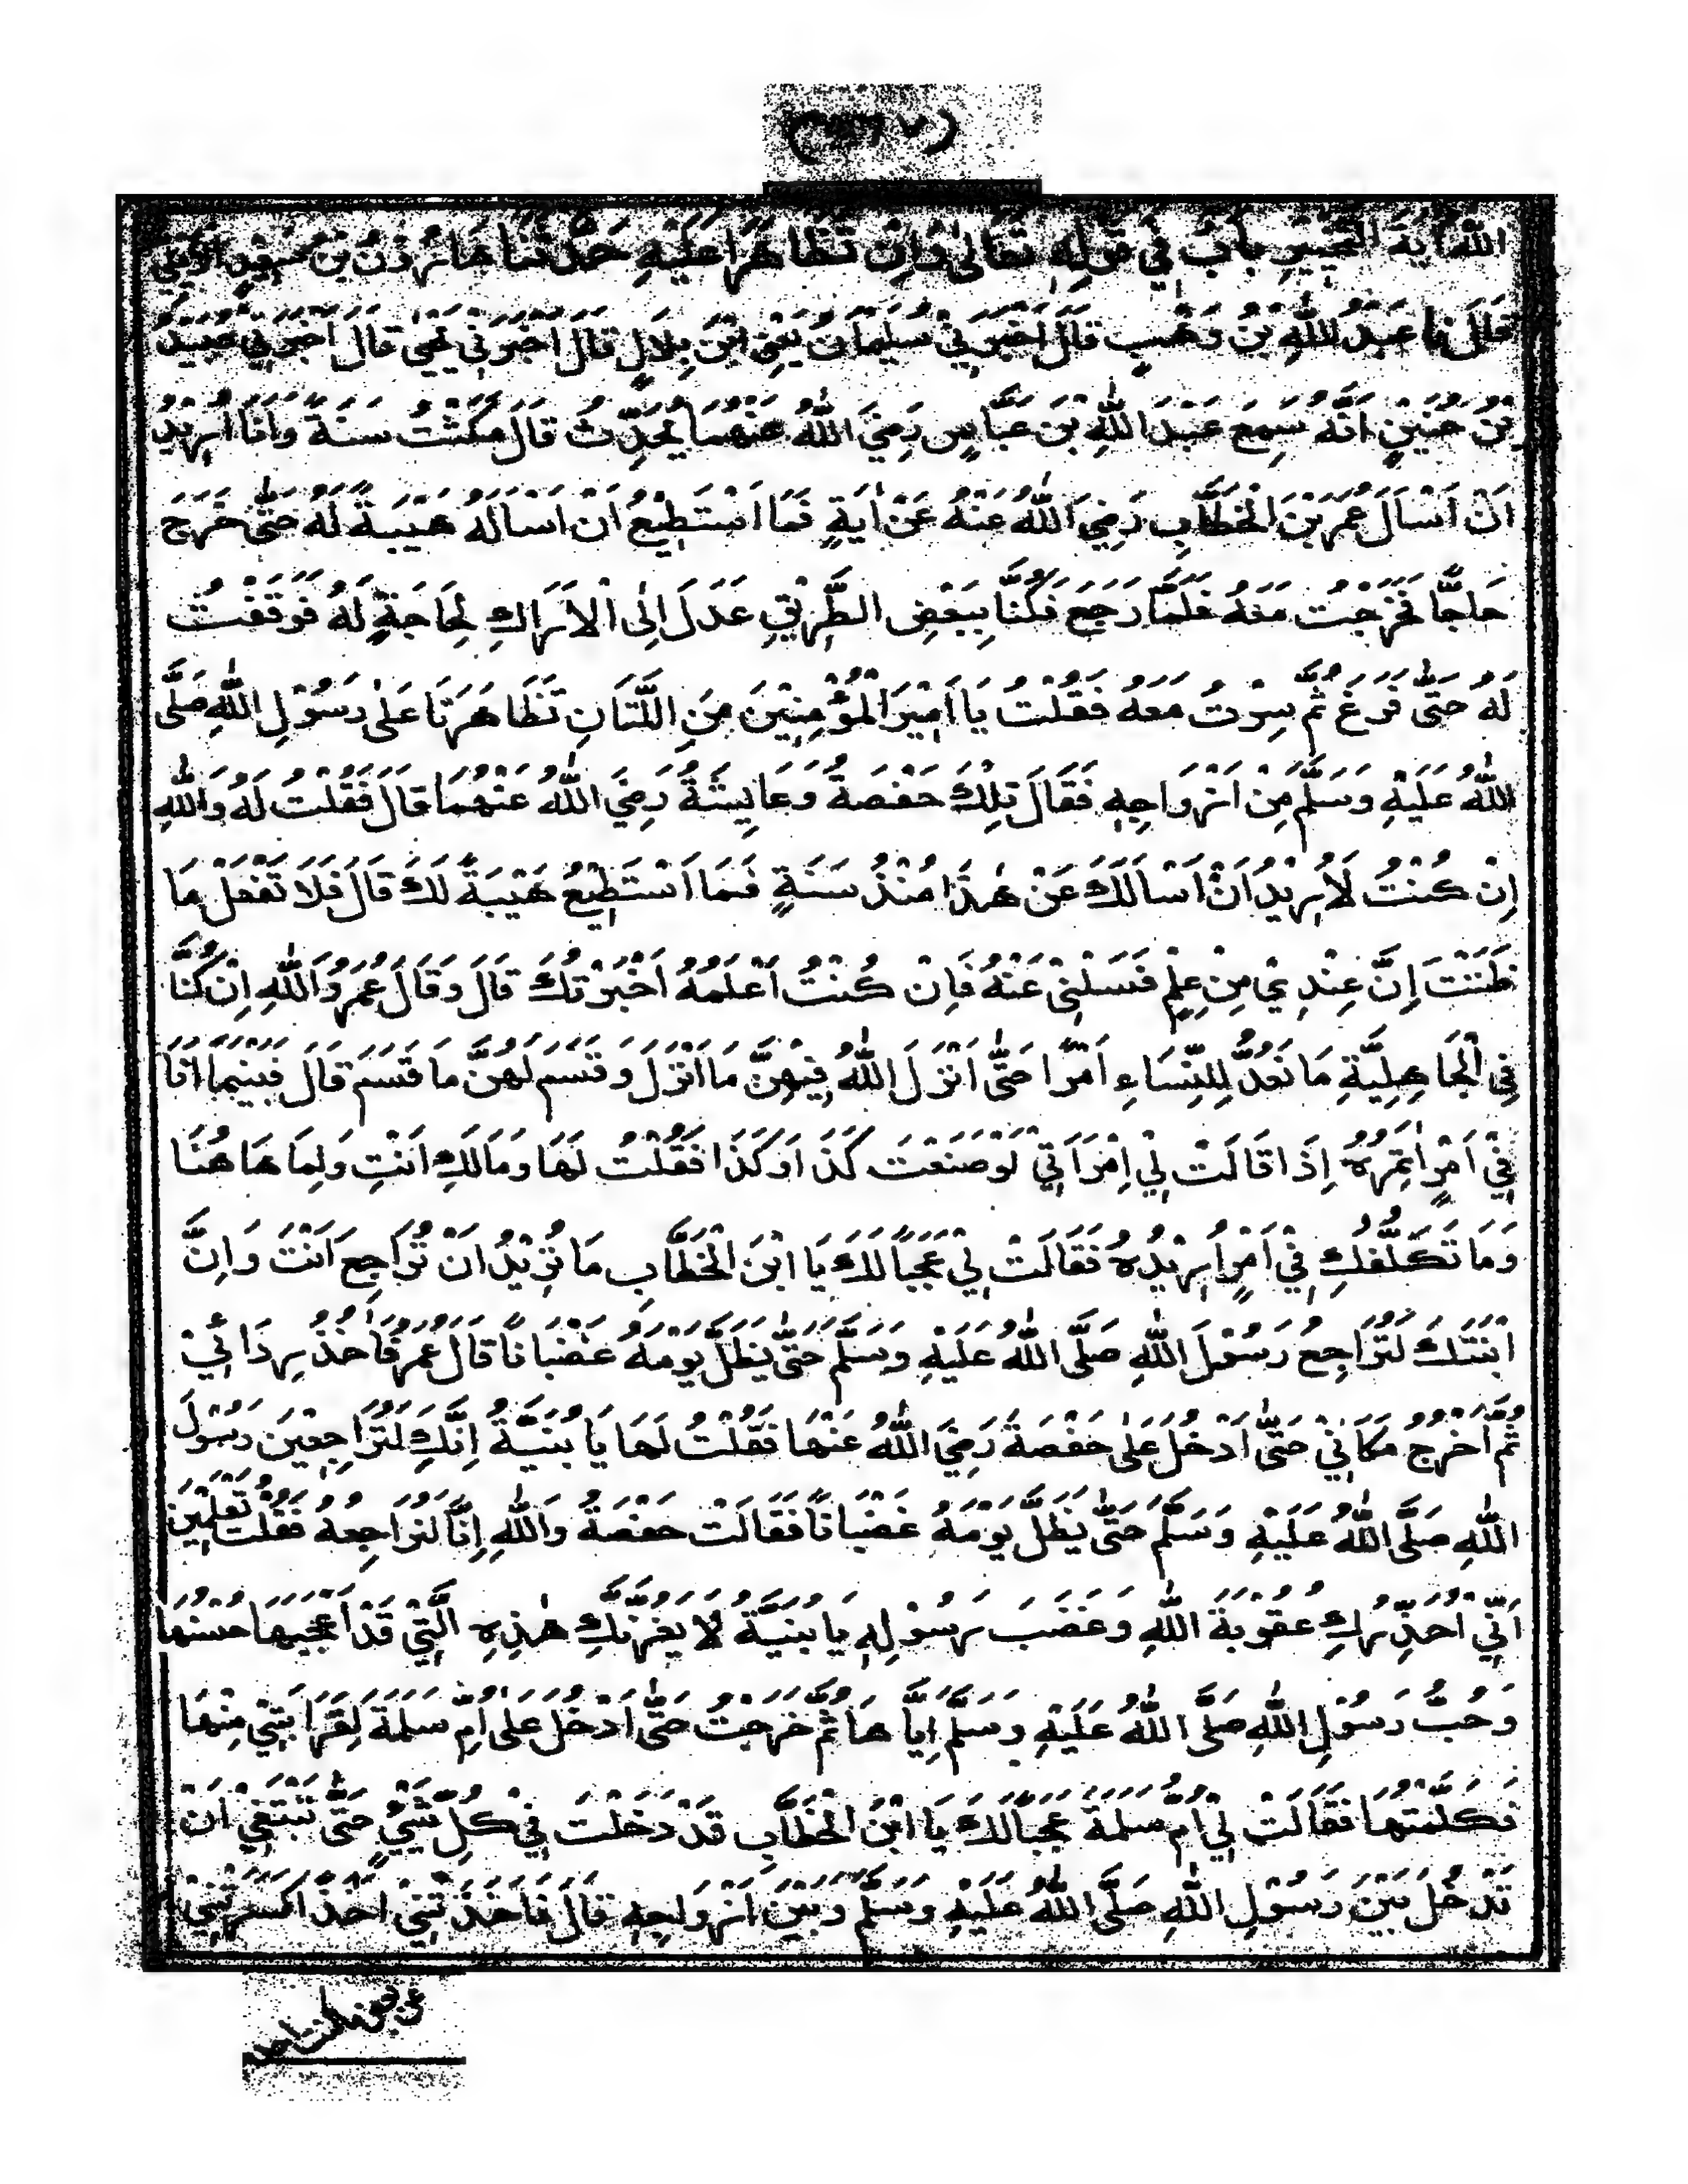 اللهُ اٰيَةَ التَّخْيِيْرِ بَابٌ فِي قَوْلِهِ تَعَالٰى وَاِنْ تَظَاهَرَا عَلَيْهِ حَدَّثَنَا هَارُوْنُ بْنُ سَعِيْدٍ الْاَيْلِيُّ
قَالَ نا عَبْدُ اللهِ بْنُ وَهْبٍ قَالَ اَخْبَرَنِيْ سُلَيْمَانُ يَعْنِي ابْنَ بِلَالٍ قَالَ اَخْبَرَنِيْ يَحْيٰى قَالَ اَخْبَرَنِيْ عُبَيْدُ
بْنُ حُنَيْنٍ اَنَّهُ سَمِعَ عَبْدَ اللهِ بْنَ عَبَّاسٍ رَضِيَ اللهُ عَنْهُمَا يُحَدِّثُ قَالَ مَكَثْتُ سَنَةً وَاَنَا اُرِيْدُ
اَنْ اَسْاَلَ عُمَرَ بْنَ الْخَطَّابِ رَضِيَ اللهُ عَنْهُ عَنْ اٰيَةٍ فَمَا اَسْتَطِيْعُ اَنْ اَسْاَلَهُ هَيْبَةً لَهُ حَتّٰى خَرَجَ
حَاجًّا فَخَرَجْتُ مَعَهُ فَلَمَّا رَجَعَ فَكُنَّا بِبَعْضِ الطَّرِيْقِ عَدَلَ اِلَى الْاَرَاكِ لِحَاجَةٍ لَهُ فَوَقَفْتُ
لَهُ حَتّٰى فَرَغَ ثُمَّ سِرْتُ مَعَهُ فَقُلْتُ يَا اَمِيْرَ الْمُؤْمِنِيْنَ مَنِ اللَّتَانِ تَظَاهَرَتَا عَلٰى رَسُوْلِ اللهِ صَلَّى
اللهُ عَلَيْهِ وَسَلَّمَ مِنْ اَزْوَاجِهِ فَقَالَ تِلْكَ حَفْصَةُ وَعَايِشَةُ رَضِيَ اللهُ عَنْهُمَا قَالَ فَقُلْتُ لَهُ وَاللهِ
اِنْ كُنْتُ لَاُرِيْدُ اَنْ اَسْاَلَكَ عَنْ هٰذَا مُنْذُ سَنَةٍ فَمَا اَسْتَطِيْعُ هَيْبَةً لَكَ قَالَ فَلَا تَفْعَلْ مَا
ظَنَنْتَ اِنَّ عِنْدِيْ مِنْ عِلْمٍ فَسَلْنِيْ عَنْهُ فَاِنْ كُنْتُ اَعْلَمُهُ اَخْبَرْتُكَ قَالَ وَقَالَ عُمَرُ وَاللهِ اِنْ كُنَّا
فِي الْجَاهِلِيَّةِ مَا نَعُدُّ لِلنِّسَاءِ اَمْرًا حَتّٰى اَنْزَلَ اللهُ فِيْهِنَّ مَا اَنْزَلَ وَقَسَمَ لَهُنَّ مَا قَسَمَ قَالَ فَبَيْنَمَا اَنَا
فِيْ اَمْرٍ اٰتَمِرُهُ اِذْ قَالَتْ لِيْ اِمْرَاَتِيْ لَوْ صَنَعْتَ كَذَا وَكَذَا فَقُلْتُ لَهَا وَمَا لَكِ اَنْتِ وَلِمَا هَاهُنَا
وَمَا تَكَلُّفُكِ فِيْ اَمْرٍ اُرِيْدُهُ فَقَالَتْ لِيْ عَجَبًا لَكَ يَا ابْنَ الْخَطَّابِ مَا تُرِيْدُ اَنْ تُرَاجَعَ اَنْتَ وَاِنَّ
ابْنَتَكَ لَتُرَاجِعُ رَسُوْلَ اللهِ صَلَّى اللهُ عَلَيْهِ وَسَلَّمَ حَتّٰى يَظَلَّ يَوْمَهُ غَضْبَانًا قَالَ عُمَرُ فَاٰخُذُ رِدَائِيْ
ثُمَّ اَخْرُجُ مَكَانِيْ حَتّٰى اَدْخُلَ عَلٰى حَفْصَةَ رَضِيَ اللهُ عَنْهَا فَقُلْتُ لَهَا يَا بُنَيَّةُ اِنَّكِ لَتُرَاجِعِيْنَ رَسُوْلَ
اللهِ صَلَّى اللهُ عَلَيْهِ وَسَلَّمَ حَتّٰى يَظَلَّ يَوْمَهُ غَضْبَانًا فَقَالَتْ حَفْصَةُ وَاللهِ اِنَّا لَنُرَاجِعُهُ فَقُلْتُ تَعْلَمِيْنَ
اَنِّيْ اُحَذِّرُكِ عُقُوْبَةَ اللهِ وَغَضَبَ رَسُوْلِهِ يَا بُنَيَّةُ لَا يَغُرَّنَّكِ هٰذِهِ الَّتِيْ قَدْ اَعْجَبَهَا حُسْنُهَا
وَحُبُّ رَسُوْلِ اللهِ صَلَّى اللهُ عَلَيْهِ وَسَلَّمَ اِيَّاهَا ثُمَّ خَرَجْتُ حَتّٰى اَدْخُلَ عَلٰى اُمِّ سَلَمَةَ لِقَرَابَتِيْ مِنْهَا
فَكَلَّمْتُهَا فَقَالَتْ لِيْ اُمُّ سَلَمَةَ عَجَبًا لَكَ يَا ابْنَ الْخَطَّابِ قَدْ دَخَلْتَ فِيْ كُلِّ شَيْءٍ حَتّٰى تَبْتَغِيَ اَنْ
تَدْخُلَ بَيْنَ رَسُوْلِ اللهِ صَلَّى اللهُ عَلَيْهِ وَسَلَّمَ وَبَيْنَ اَزْوَاجِهِ قَالَ فَاَخَذَتْنِيْ اَخْذًا كَسَرَتْنِيْ